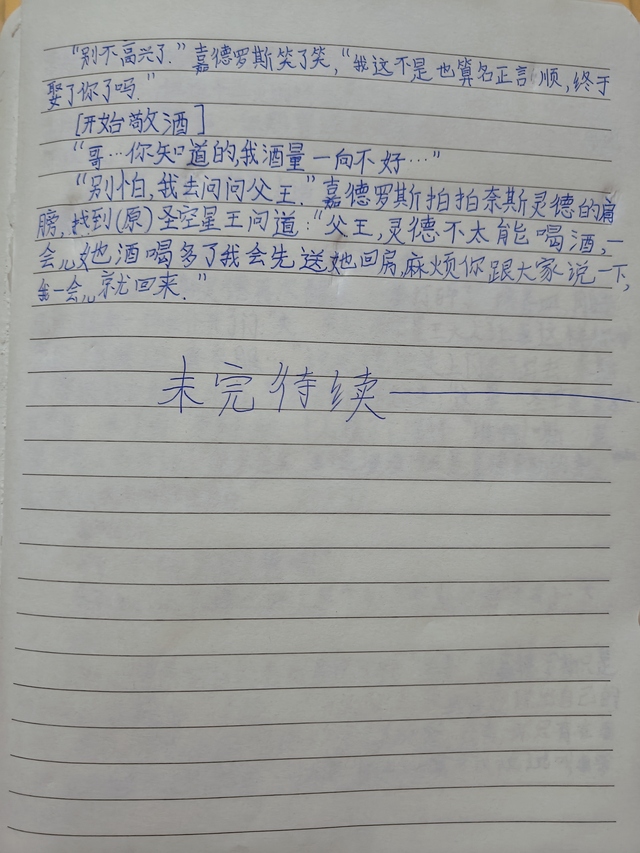 “别不高兴了.”嘉德罗斯笑了笑,“我这不是也算名正言顺,终于
娶了你了吗.”
[开始敬酒]
“哥…你知道的,我酒量一向不好…”
“别怕,我去问问父王.”嘉德罗斯拍拍奈斯灵德的肩
膀,找到(原)圣空星王问道:“父王,灵德不太能喝酒,一
会儿她酒喝多了我会先送她回房,麻烦你跟大家说一下,
我一会儿就回来.”
未完待续——